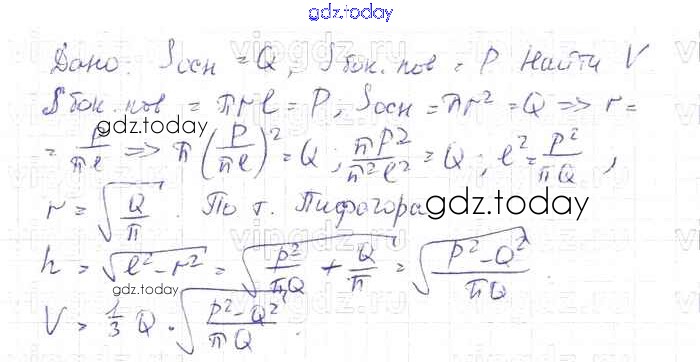 gdz.today
Дано: Sосн = Q, Sбок. пов = P Найти V
Sбок. пов = πrl = P, Sосн = πr² = Q => r =
= P/πl => π(P/πl)² = Q; πP²/π²l² = Q; l² = P²/πQ,
gdz.today
r = √(Q/π). По т. Пифагора
gdz.today
h = √(l² - r²) = √(P²/πQ + Q/π) = √((P² - Q²)/πQ)
gdz.today
V = 1/3 Q · √((P² - Q²)/πQ).